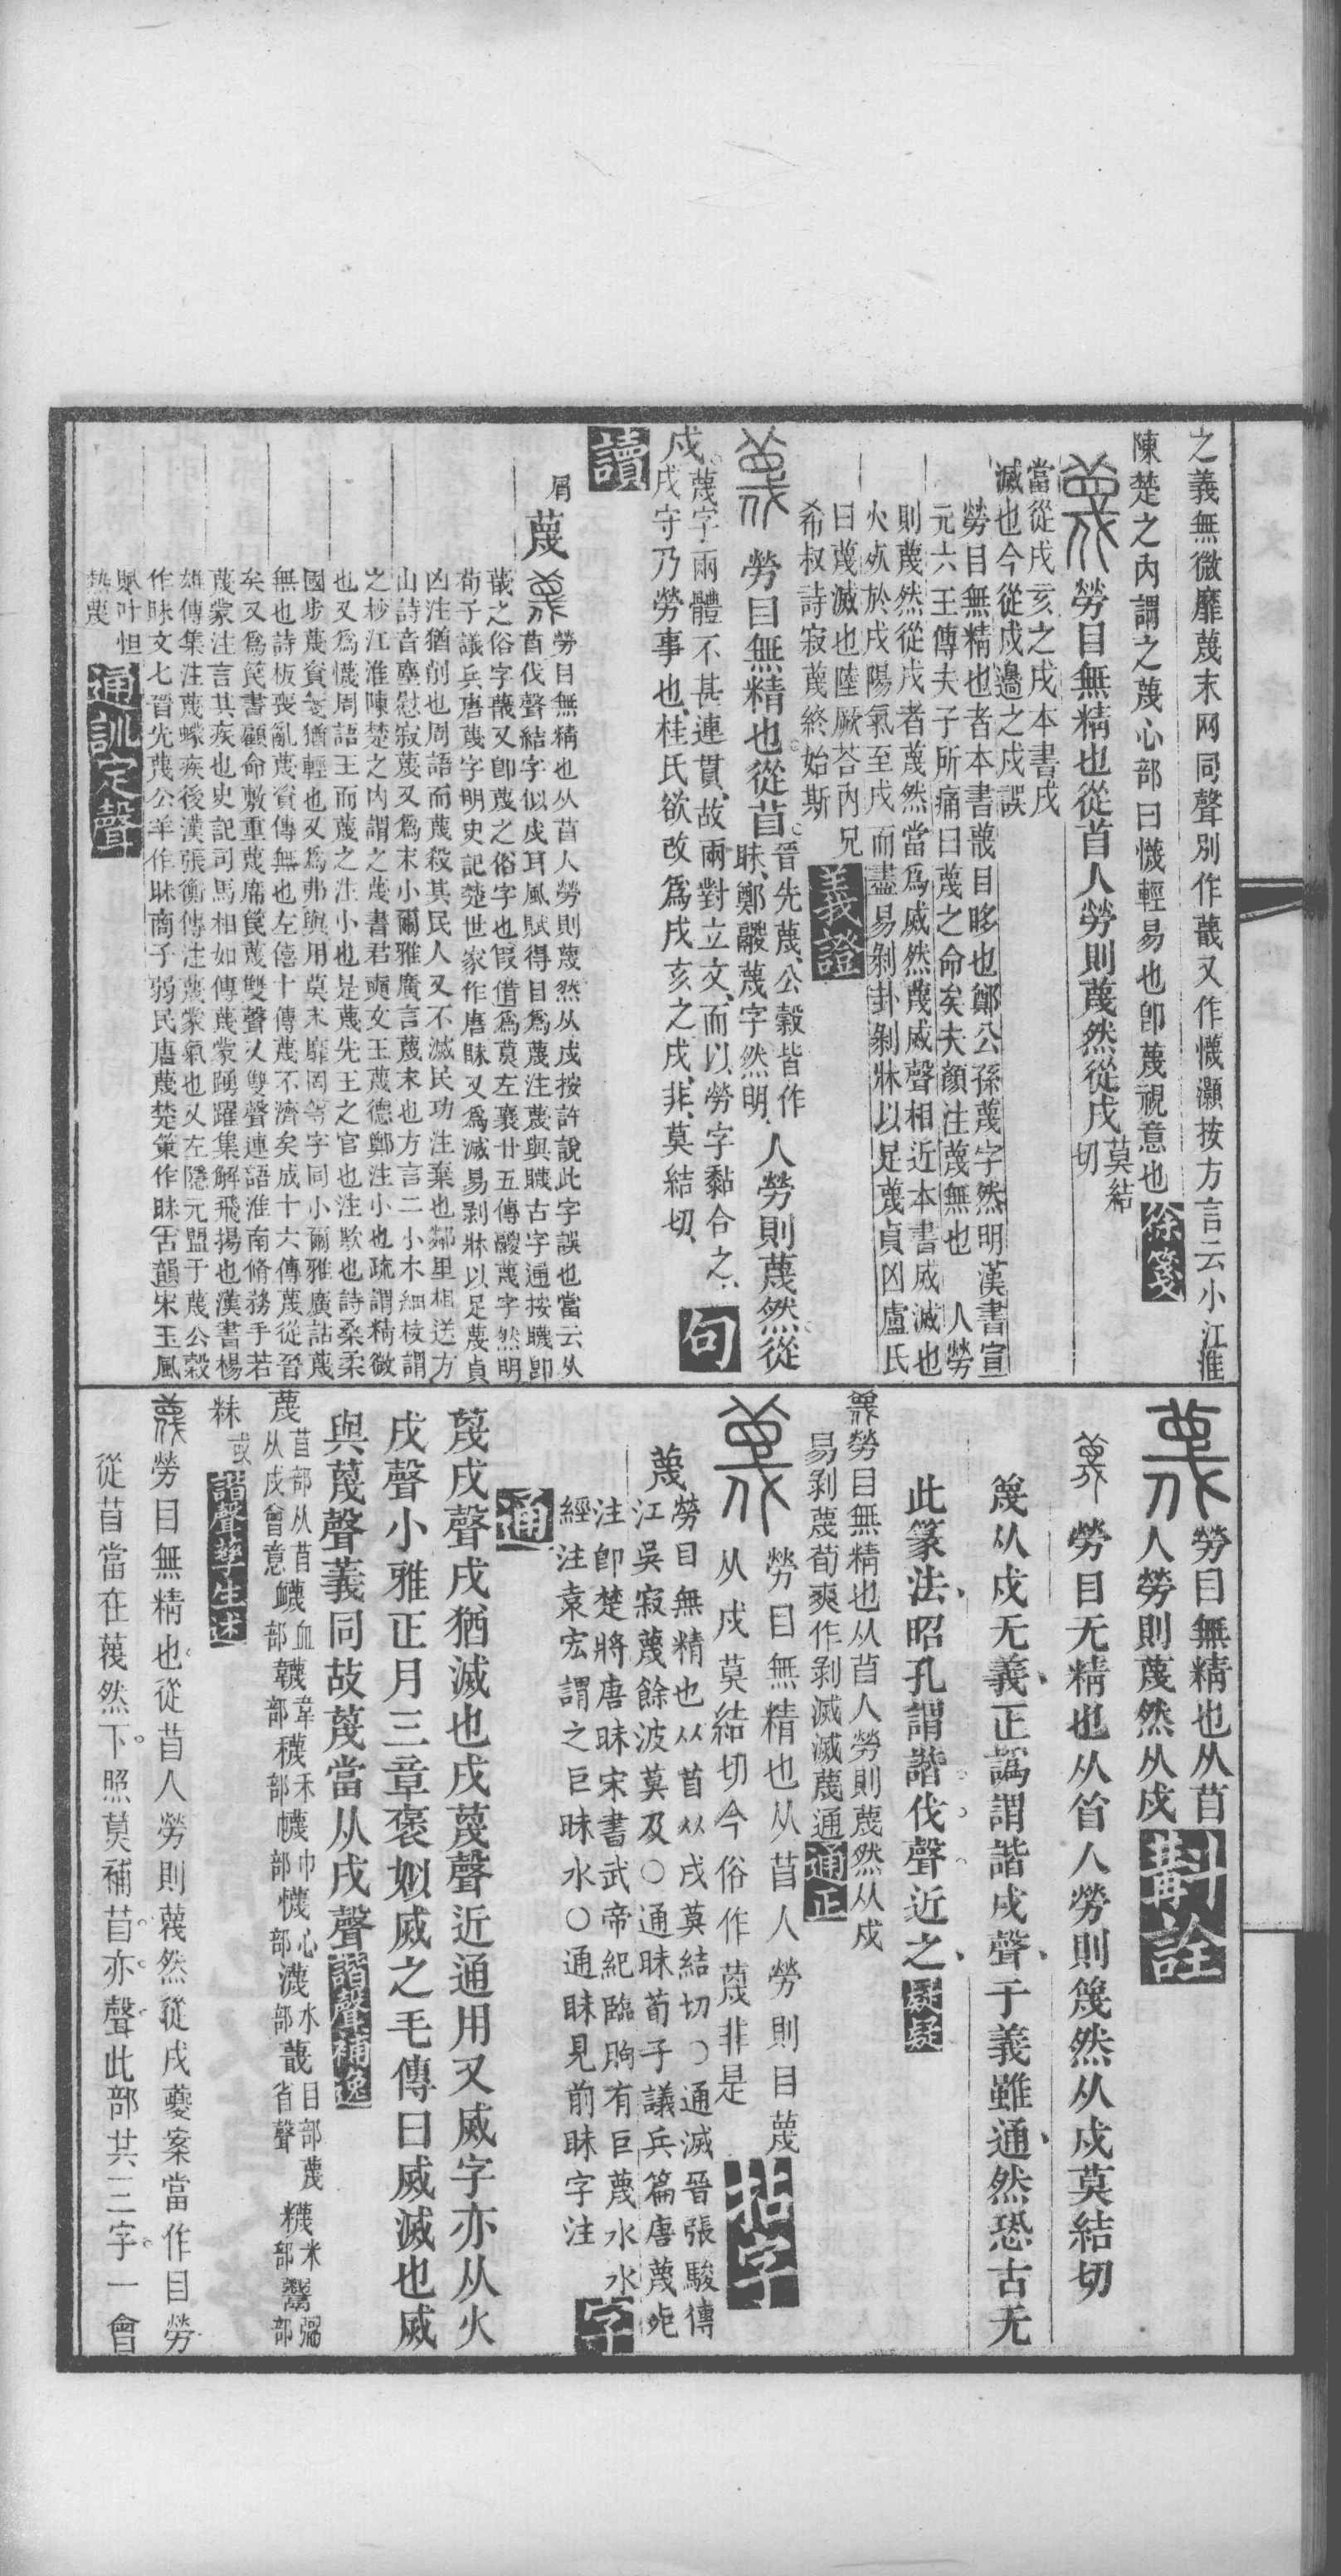 之義無微靡蔑末网同聲別作韱又作懱灝按方言云小江淮
陳楚之內謂之蔑心部曰懱輕易也卽蔑視意也
徐箋
勞目無精也從苜人勞則蔑然從戍莫結切
當從戌亥之戌本書戌
滅也今從戍邊之戍誤
勞目無精也者本書䁾目眵也鄭公孫蔑字然明漢書宣
元六王傳夫子所痛曰蔑之命矣夫顏注蔑無也 人勞
則蔑然從戍者蔑然當爲烕然蔑烕聲相近本書烕滅也
火㷠於戌陽氣至戌而盡易剝卦剝牀以足蔑貞凶盧氏
曰蔑滅也陸厥荅內兄
希叔詩寂蔑終始斯
義證
勞目無精也從苜
晉先蔑公穀皆作
眜鄭鬷蔑字然明
人勞則蔑然從
戍
蔑字兩體不甚連貫故兩對立文而以勞字黏合之
戍守乃勞事也桂氏欲改爲戌亥之戌非莫結切
句
讀
屑
蔑
勞目無精也从苜人勞則蔑然从戍按許說此字誤也當云从
苜伐聲結字似戍耳風賦得目爲蔑注蔑與䁾古字通按䁾卽
蔑之俗字䁾又卽蔑之俗字也叚借爲莫左襄廿五傳鬷蔑字然明
荀子議兵唐蔑字明史記楚世家作唐眜又爲滅易剝牀以足蔑貞
凶注猶削也周語而蔑殺其民人又不滅民功注棄也鄰里相送方
山詩音塵慰寂蔑又爲末小爾雅廣言蔑末也方言二小木細枝謂
之杪江淮陳楚之內謂之蔑書君奭文王蔑德鄭注小也疏謂精微
也又爲懱周語王而蔑之注小也是蔑先王之官也注欺也詩桑柔
國步蔑資箋猶輕也又爲弗與用莫末靡罔等字同小爾雅廣詁蔑
無也詩板喪亂蔑資傳無也左僖十傳蔑不濟矣成十六傳蔑從晉
矣又爲筤書顧命敷重蔑席筤蔑雙聲又雙聲連語淮南脩務手若
蔑蒙注言其疾也史記司馬相如傳蔑蒙踴躍集解飛揚也漢書楊
雄傳集注蔑蠓疾後漢張衡傳注蔑蒙氣也又左隱元盟于蔑公穀
作眛文七晉先蔑公羊作眛商子弱民唐蔑楚策作眛古韻宋玉風
賦叶怛
熱蔑
通訓定聲
勞目無精也从苜
人勞則蔑然从戍
斠詮
勞目无精也从首人勞則篾然从戍莫結切
篾从戍无義正譌謂諧戍聲于義雖通然恐古无
此篆法昭孔謂諧伐聲近之
疑疑
勞目無精也从苜人勞則蔑然从戍
易剝蔑荀爽作剝滅滅蔑通
通正
勞目無精也从苜人勞則目蔑
从戍莫結切今俗作蔑非是
拈字
蔑
勞目無精也从苜从戍莫結切○通滅晉張駿傳
江吳寂蔑餘波莫及○通眛荀子議兵篇唐蔑死
注卽楚將唐眛宋書武帝紀臨朐有巨蔑水水
經注袁宏謂之巨眛水○通眛見前眛字注
字
通
蔑戌聲戌猶滅也戌蔑聲近通用又烕字亦从火
戌聲小雅正月三章褒姒烕之毛傳曰烕滅也烕
與蔑聲義同故蔑當从戌聲
諧聲補逸
蔑
苜部从苜
从戍會意
衊
血部
韈
韋部
穖
禾部
幭
巾部
懱
心部
瀎
水部
䁾
目部蔑
省聲
糢
米部
鬻
䰜部
䊳
或
諧聲孳生述
勞目無精也從苜人勞則蔑然從戍夔案當作目勞
從苜當在蔑然下照莫補苜亦聲此部共三字一會